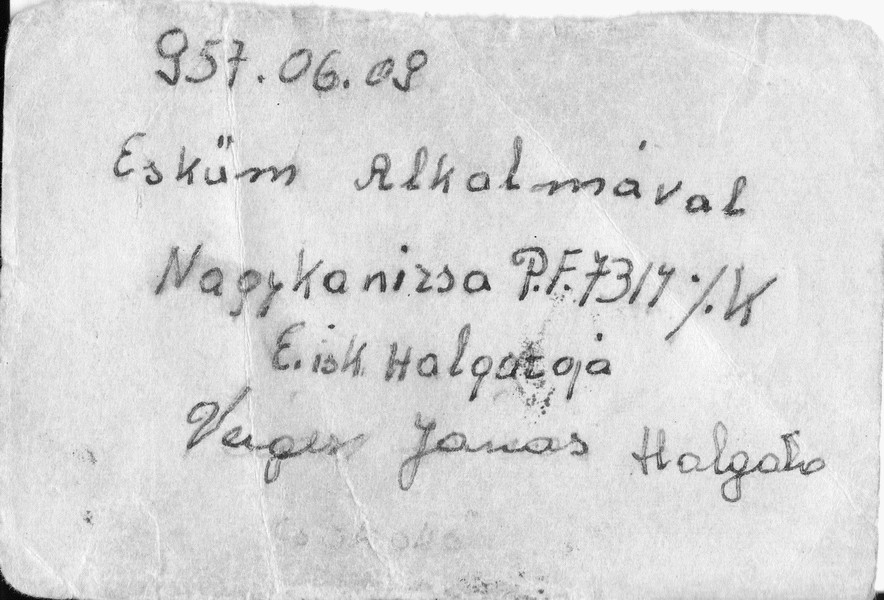 957.06.09
Esküm Alkalmával
Nagykanizsa P.F. 7317 ./. K
E. isk. Halgatojá
Janos Halgato